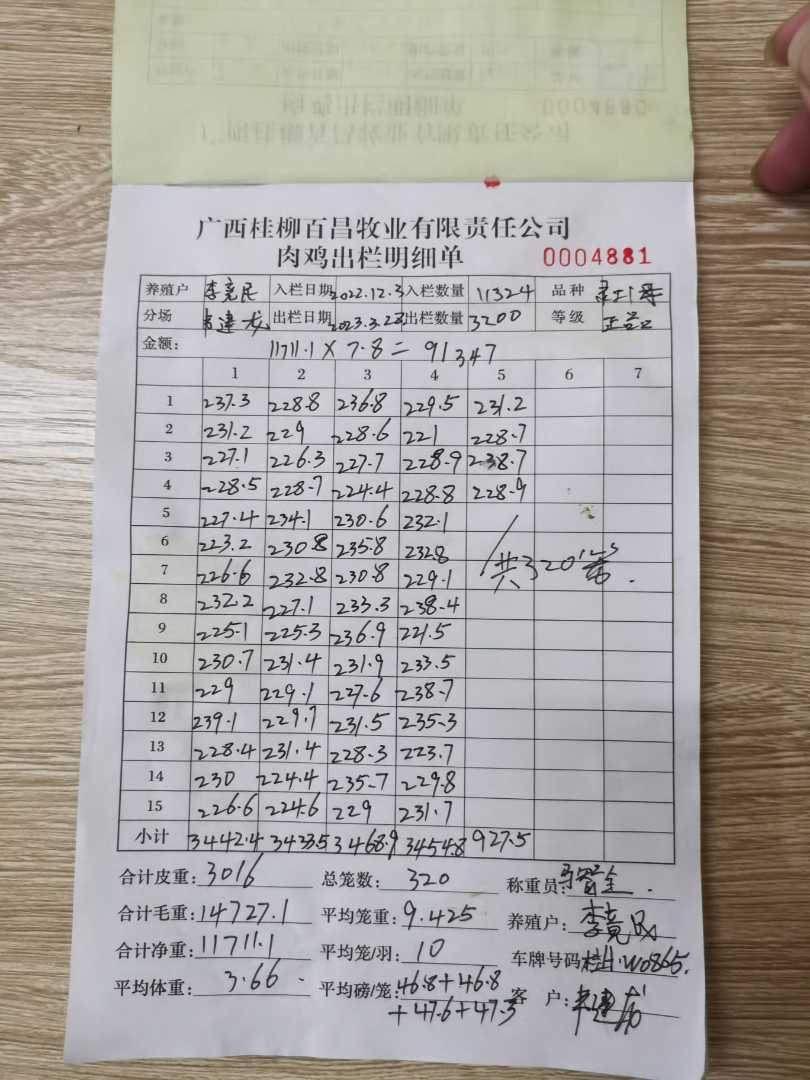 广西桂柳百昌牧业有限责任公司
肉鸡出栏明细单 0004881
养殖户 李竟民 入栏日期 2022.12.3 入栏数量 11324 品种
分场 出栏日期 2023.3.23 出栏数量 3200 等级 正品
金额: 11711.1 × 7.8 = 91347
1 2 3 4 5 6 7
1 237.3 228.8 236.8 229.5 231.2
2 231.2 229 228.6 221 228.7
3 227.1 226.3 227.7 228.9 238.7
4 228.5 228.7 224.4 228.8 228.9
5 227.4 234.1 230.6 232.1
6 223.2 230.8 235.8 232.8
7 226.6 232.8 230.8 229.1 共320
8 232.2 227.1 233.3 238.4
9 225.1 225.3 236.9 221.5
10 230.7 231.4 231.9 233.5
11 229 229.1 227.6 238.7
12 239.1 229.7 231.5 235.3
13 228.4 231.4 228.3 223.7
14 230 224.4 235.7 229.8
15 226.6 224.6 229 231.7
小计 3442.4 3423.5 3468.9 3454.8 927.5
合计皮重: 3016 总笼数: 320 称重员:
合计毛重: 14727.1 平均笼重: 9.425 养殖户: 李竟民
合计净重: 11711.1 平均笼/羽: 10 车牌号码 桂H·W0865.
平均体重: 3.66 平均磅/笼: 46.8+46.8 客 户:
+47.6+47.3